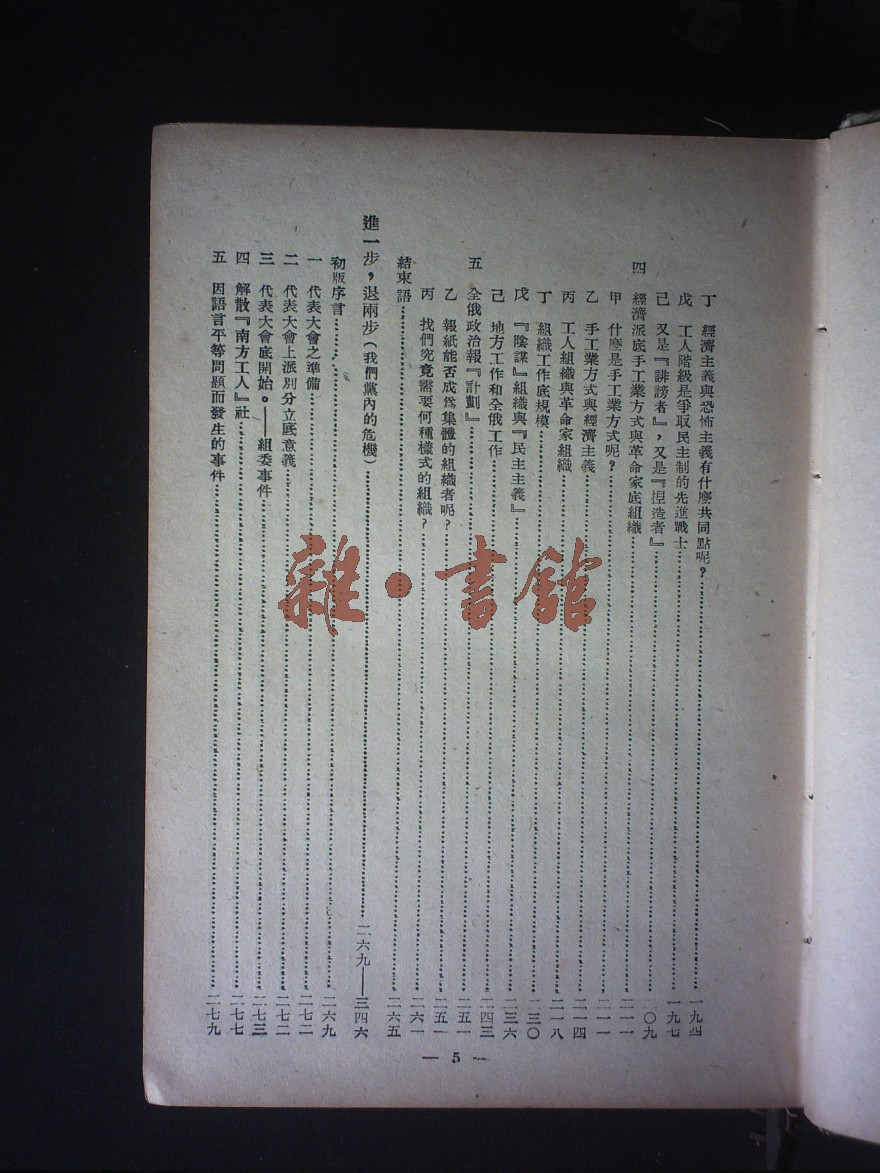 丁　經濟主義與恐怖主義有什麼共同點呢？……一九四
戊　工人階級是爭取民主制的先進戰士……一九七
己　又是『誹謗者』，又是『捏造者』……二〇九
四　經濟派底手工業方式與革命家底組織……二一一
甲　什麼是手工業方式呢？……二一一
乙　手工業方式與經濟主義……二一四
丙　工人組織與革命家組織……二一八
丁　組織工作底規模……二三〇
戊　『陰謀』組織與『民主主義』……二三六
己　地方工作和全俄工作……二四三
五　全俄政治報『計劃』……二五一
乙　報紙能否成爲集體的組織者呢？……二五一
丙　我們究竟需要何種樣式的組織？……二六一
結束語……二六五
進一步，退兩步（我們黨內的危機）……二六九——三四六
初版序言……二六九
一　代表大會之準備……二七二
二　代表大會上派別分立底意義……二七二
三　代表大會底開始。——組委事件……二七三
四　解散『南方工人』社……二七七
五　因語言平等問題而發生的事件……二七九
— 5 —
雜·書館